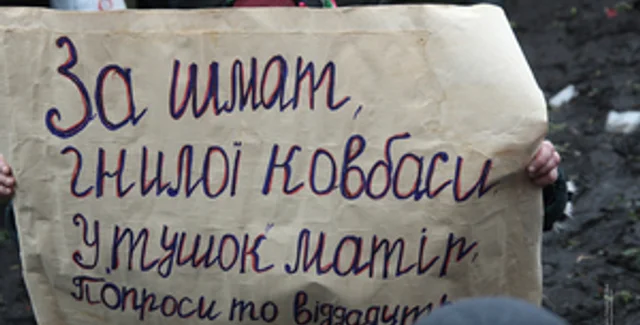 За шмат,
гнилої ковбаси
У тушок матір,
Попроси то віддадуть